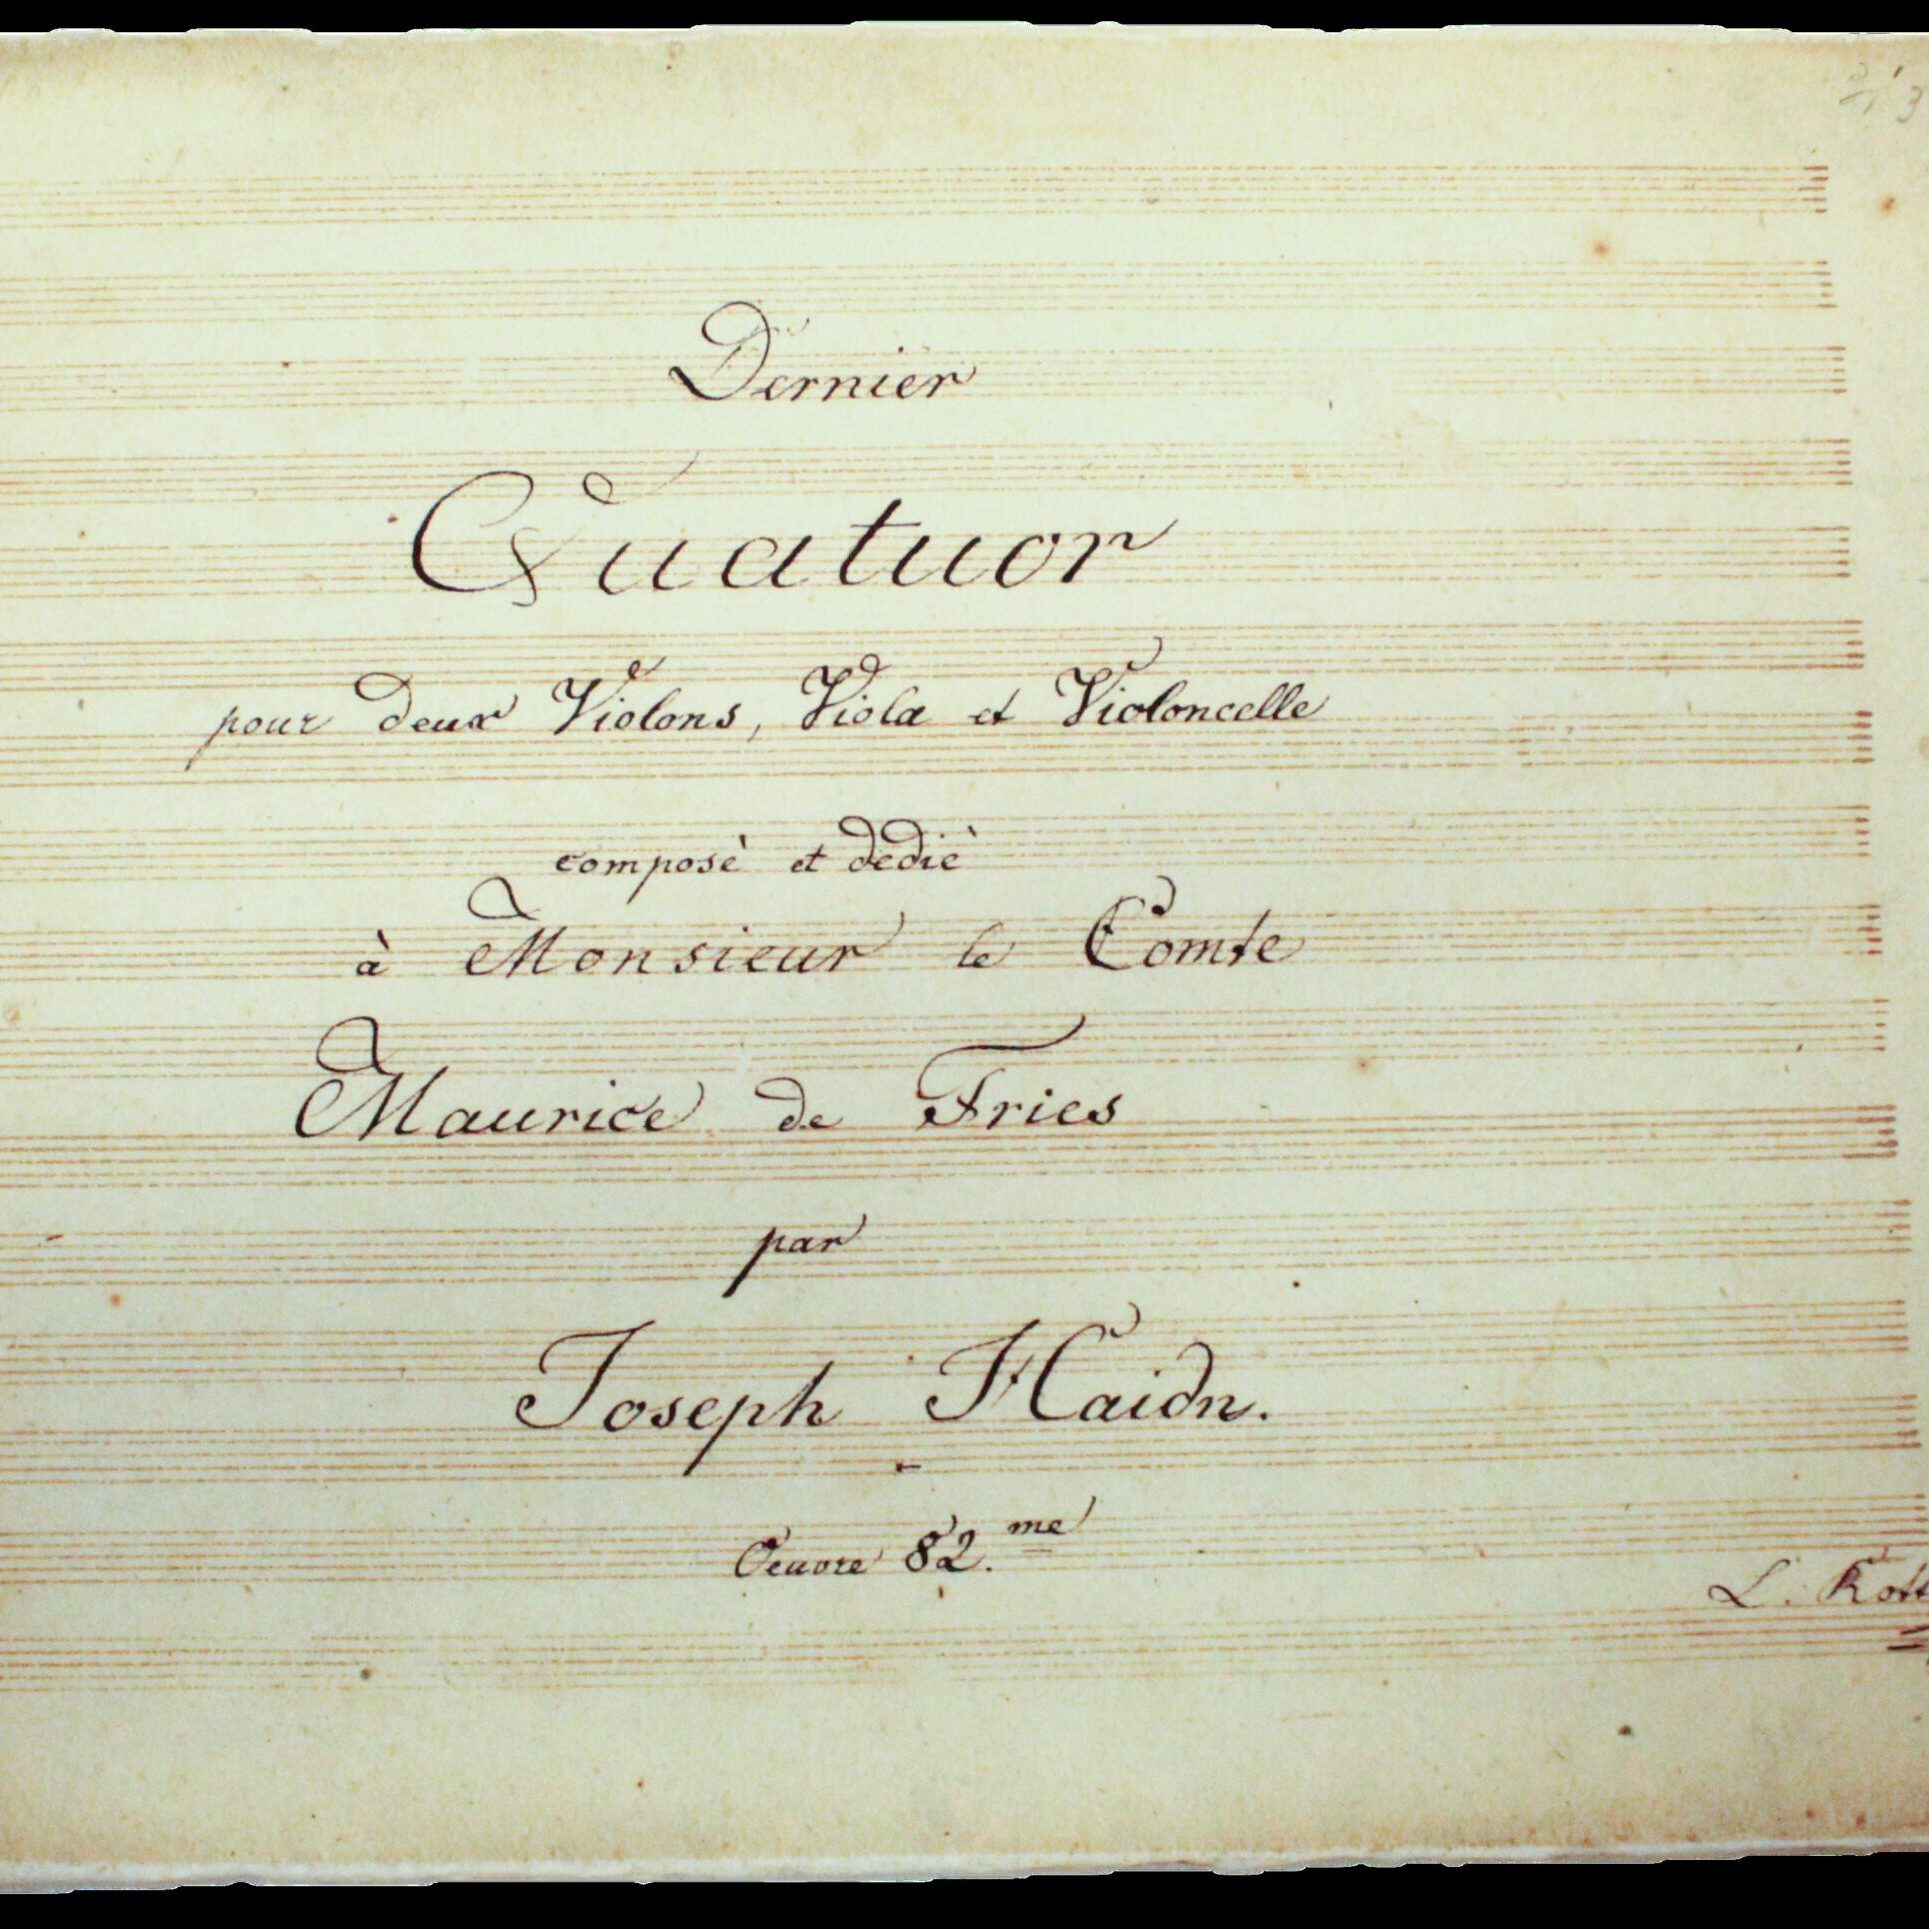 Dernier
Quatuor
pour deux Violons, Viola et Violoncelle
composè et dediè
à Monsieur le Comte
Maurice de Fries
par
Joseph Haidn.
Oeuvre 82.me
L.